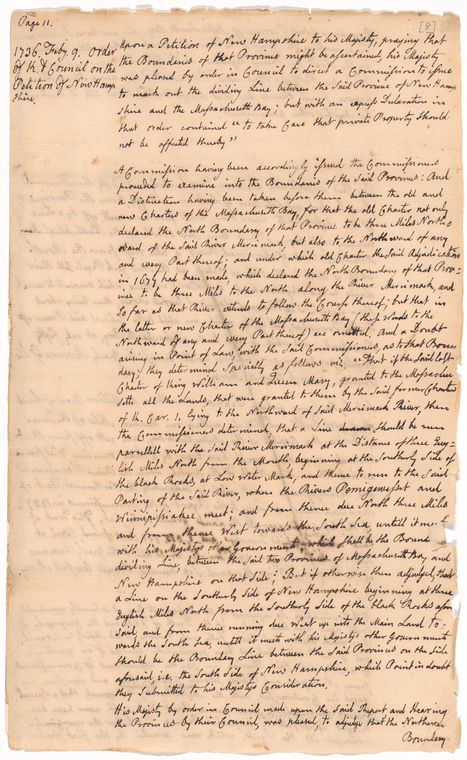 Page 11.
[8]
1736. Feby. 9. Order
of K. & Council on the
Petition of New Hamp
shire.
Upon a Petition of New Hampshire to his Majesty, praying that
the Bounderies of that Province might be ascertained, his Majesty
was pleased by order in Council to direct a Commission to issue
to mark out the dividing Line between the said Province of New Hamp
shire and the Massachusetts Bay; but with an express Declaration in
that order contained "to take Care that private Property should
not be affected thereby"
A Commission having been accordingly issued the Commissioners
proceeded to examine into the Bounderies of the Said Provinces: And
a Distinction having been taken before them between the old and
new Charters of the Massachusetts Bay, for that the old Charter not only
declared the North Boundery of that Province to be three Miles North-
ward of the Said River Merrimack, but also to the Northward of any
and every Part thereof; and under which old Charter the Said Adjudications
in 1677 had been made, which declared the North Boundery of that Prov-
ince to be three Miles to the North along the River Merrimack, and
So far as that River extends to follow the Course thereof; but that in
the latter or new Charter of the Massachusetts Bay (these Words to the
Northward of any and every Part thereof) are omitted. And a Doubt
arising in Point of Law, with the Said Commissioners, as to that Boun
dery; they determined Specially as follows viz. "That if the Said last
Charter of King William and Queen Mary, granted to the Massachu
setts all the Lands, that were granted to them by the Said former Charter
of K. Car. 1. lying to the Northward of Said Merrimack River, then
the Commissioners determined, that a Line should be run
parrellell with the Said River Merrimack at the Distance of three Eng-
lish Miles North from the Mouth, beginning at the Southerly Side of
the black Rocks, at Low Water Mark, and thence to run to the Said
Parting of the Said River, where the Rivers Pemigewasset and
Winnipissiakee meet; and from thence due North three Miles
and from thence West towards the South Sea until it meet
with his Majestys other Government which shall be the Bound
dividing Line, between the Said two Provinces of Massachusetts Bay and
New Hampshire on that Side; But if otherwise then adjudged, that
a Line on the Southerly Side of New Hampshire beginning at three
English Miles North from the Southerly Side of the black Rocks afore
Said, and from thence running due West up into the Main Land to-
wards the South Sea, untill it meet with his Majestys other Government
Should be the Boundery Line between the Said Provinces on the Side
aforesaid, i.e. the South Side of New Hampshire, which Point in doubt
they Submitted to his Majestys Consideration.
His Majesty by order in Council made upon the Said Report and Hearing
the Provinces by their Council, was pleased, to adjudge that the Northern
Boundery